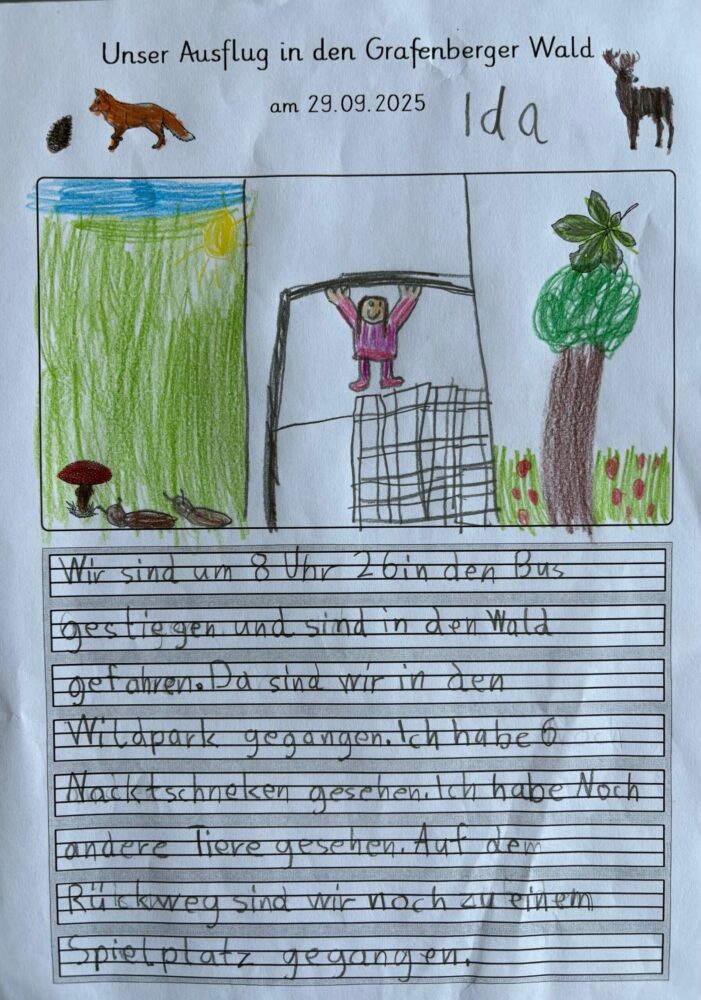 Unser Ausflug in den Grafenberger Wald
am 29.09.2025
Ida
Wir sind um 8 Uhr 26 in den Bus
gestiegen und sind in den Wald
gefahren. Da sind wir in den
Wildpark gegangen. Ich habe 6
Nacktschneken gesehen. Ich habe Noch
andere Tiere gesehen. Auf dem
Rückweg sind wir noch zu einem
Spielplatz gegangen.